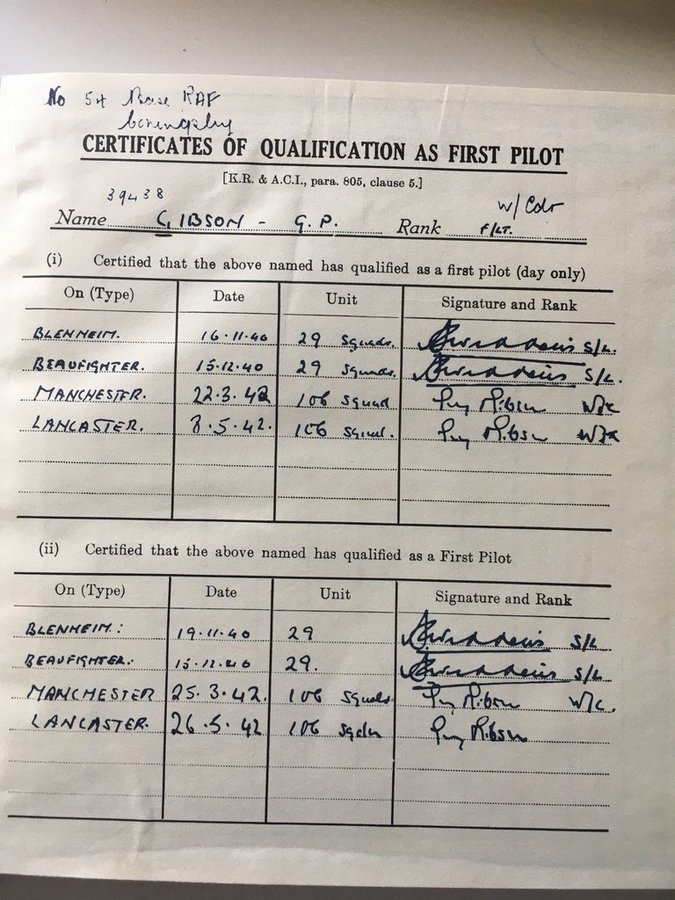 No 54 Base RAF
Coningsby
CERTIFICATES OF QUALIFICATION AS FIRST PILOT
[K.R. & A.C.I., para. 805, clause 5.]
39438 W/Cdr
Name GIBSON - G.P. Rank F/LT.
(i) Certified that the above named has qualified as a first pilot (day only)
On (Type) Date Unit Signature and Rank
BLENHEIM. 16.11.40 29 Squadn. S/L.
BEAUFIGHTER. 15.12.40 29 Squadn. S/L.
MANCHESTER. 22.3.42 106 Squad Guy Gibson W/C
LANCASTER. 8.5.42. 106 Squad. Guy Gibson W/C
(ii) Certified that the above named has qualified as a First Pilot
On (Type) Date Unit Signature and Rank
BLENHEIM: 19.11.40 29 S/L
BEAUFIGHTER. 15.12.40 29. S/L.
MANCHESTER 25.3.42. 106 Squdn Guy Gibson W/C.
LANCASTER. 26.5.42 106 Sqdn Guy Gibson